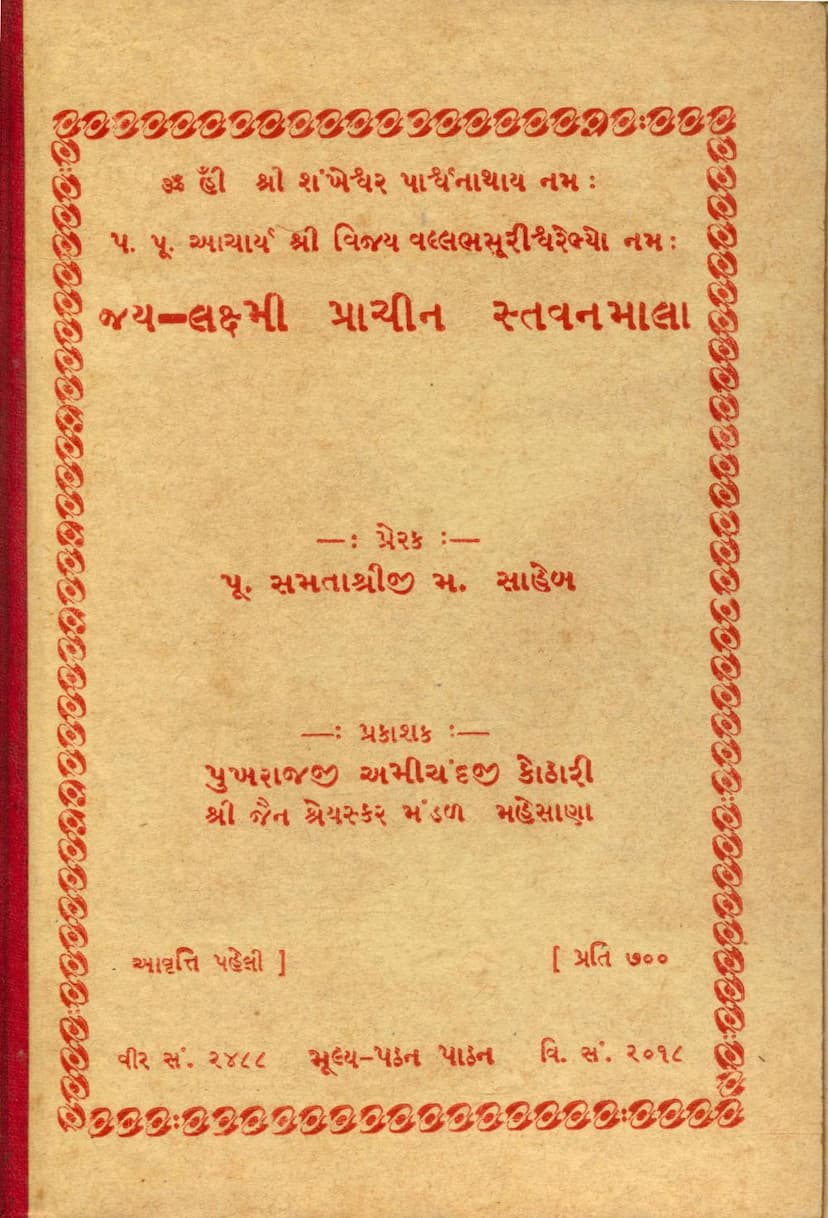 ॐ હ્રીઁ શ્રી શંખેશ્વર પાર્શ્વનાથાય નમઃ
પ. પૂ. આચાર્ય શ્રી વિજય વલ્લભસૂરીશ્વરેભ્યો નમઃ
જય-લક્ષ્મી પ્રાચીન સ્તવનમાલા
—: પ્રેરક :—
પૂ. સમતાશ્રીજી મ. સાહેબ
—: પ્રકાશક :—
પુખરાજજી અમીચંદજી કોઠારી
શ્રી જૈન શ્રેયસ્કર મંડળ મહેસાણા
આવૃત્તિ પહેલી ] [ પ્રતિ ૭૦૦
વીર સં. ૨૪૮૮ મૂલ્ય-પઠન પાઠન વિ. સં. ૨૦૧૮